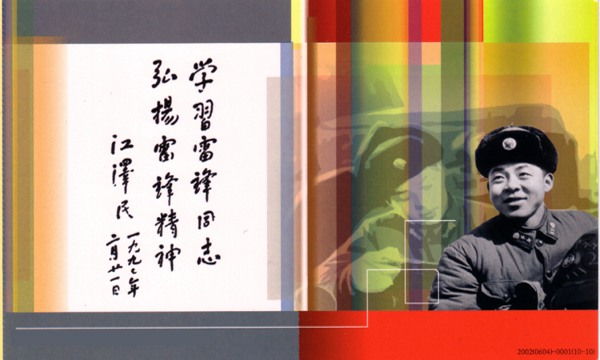 学習雷鋒同志
弘揚雷鋒精神
江澤民
一九九〇年
二月廿一日
2002(0604)-0001(10-10)